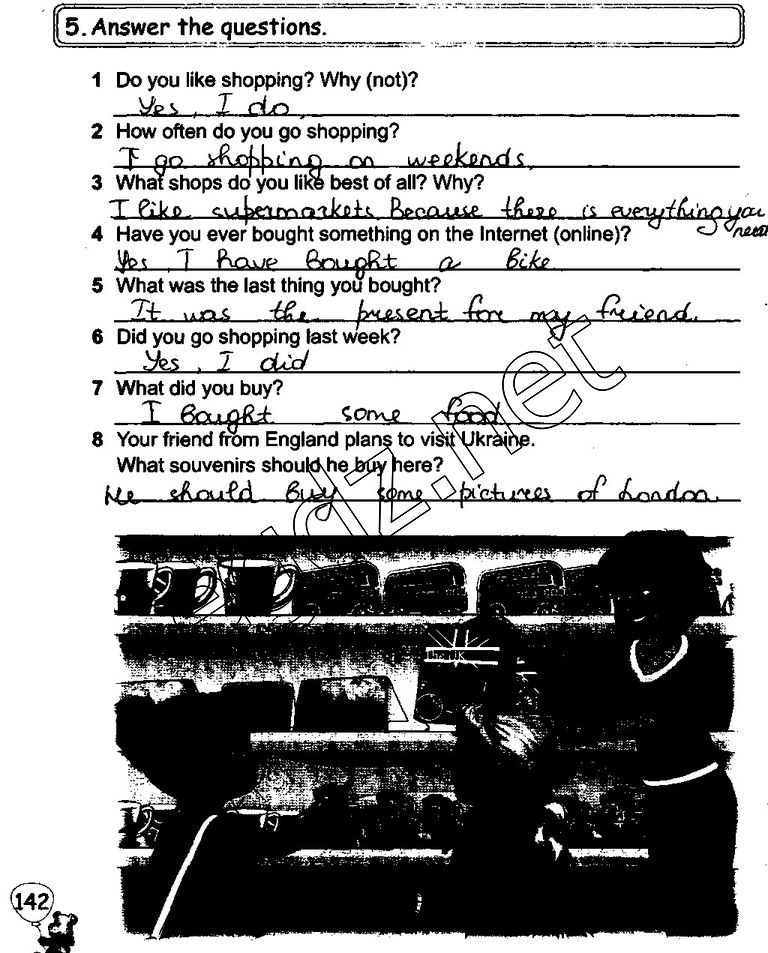 5. Answer the questions.
1 Do you like shopping? Why (not)?
Yes, I do.
2 How often do you go shopping?
I go shopping on weekends.
3 What shops do you like best of all? Why?
I like supermarkets. Because there is everything you need
4 Have you ever bought something on the Internet (online)?
Yes, I have bought a bike
5 What was the last thing you bought?
It was the present for my friend.
6 Did you go shopping last week?
Yes, I did
7 What did you buy?
I bought some food
8 Your friend from England plans to visit Ukraine.
What souvenirs should he buy here?
He should buy some pictures of London.
142